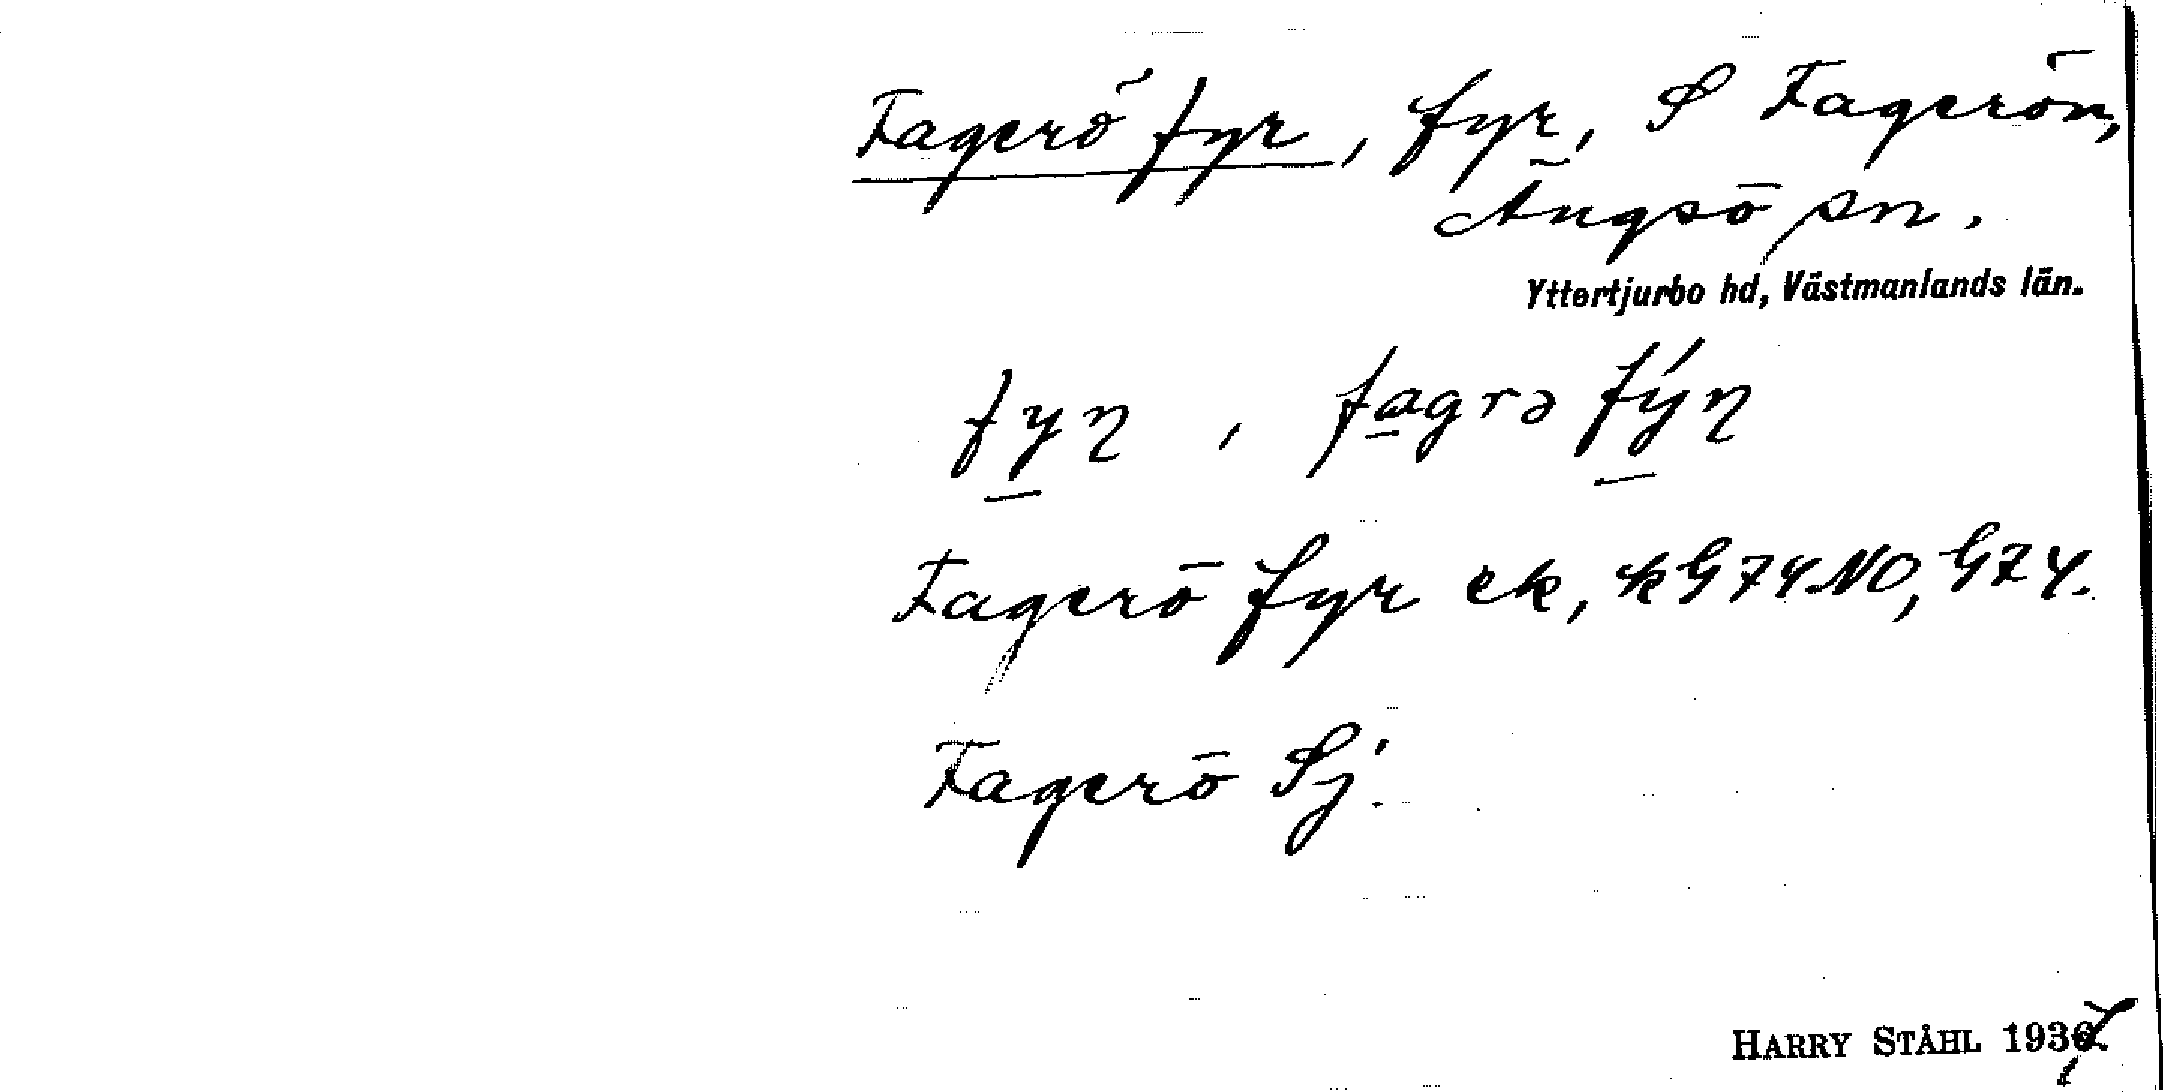 Fagerö fyr, fyr, S Fagerön,
Ängsö sn.
Yttertjurbo hd, Västmanlands län.
fyɽ, fagrə fýɽ
Fagerö fyr ek, kG74NO, G74.
Fagerö Sj.
HARRY STÅHL 1937